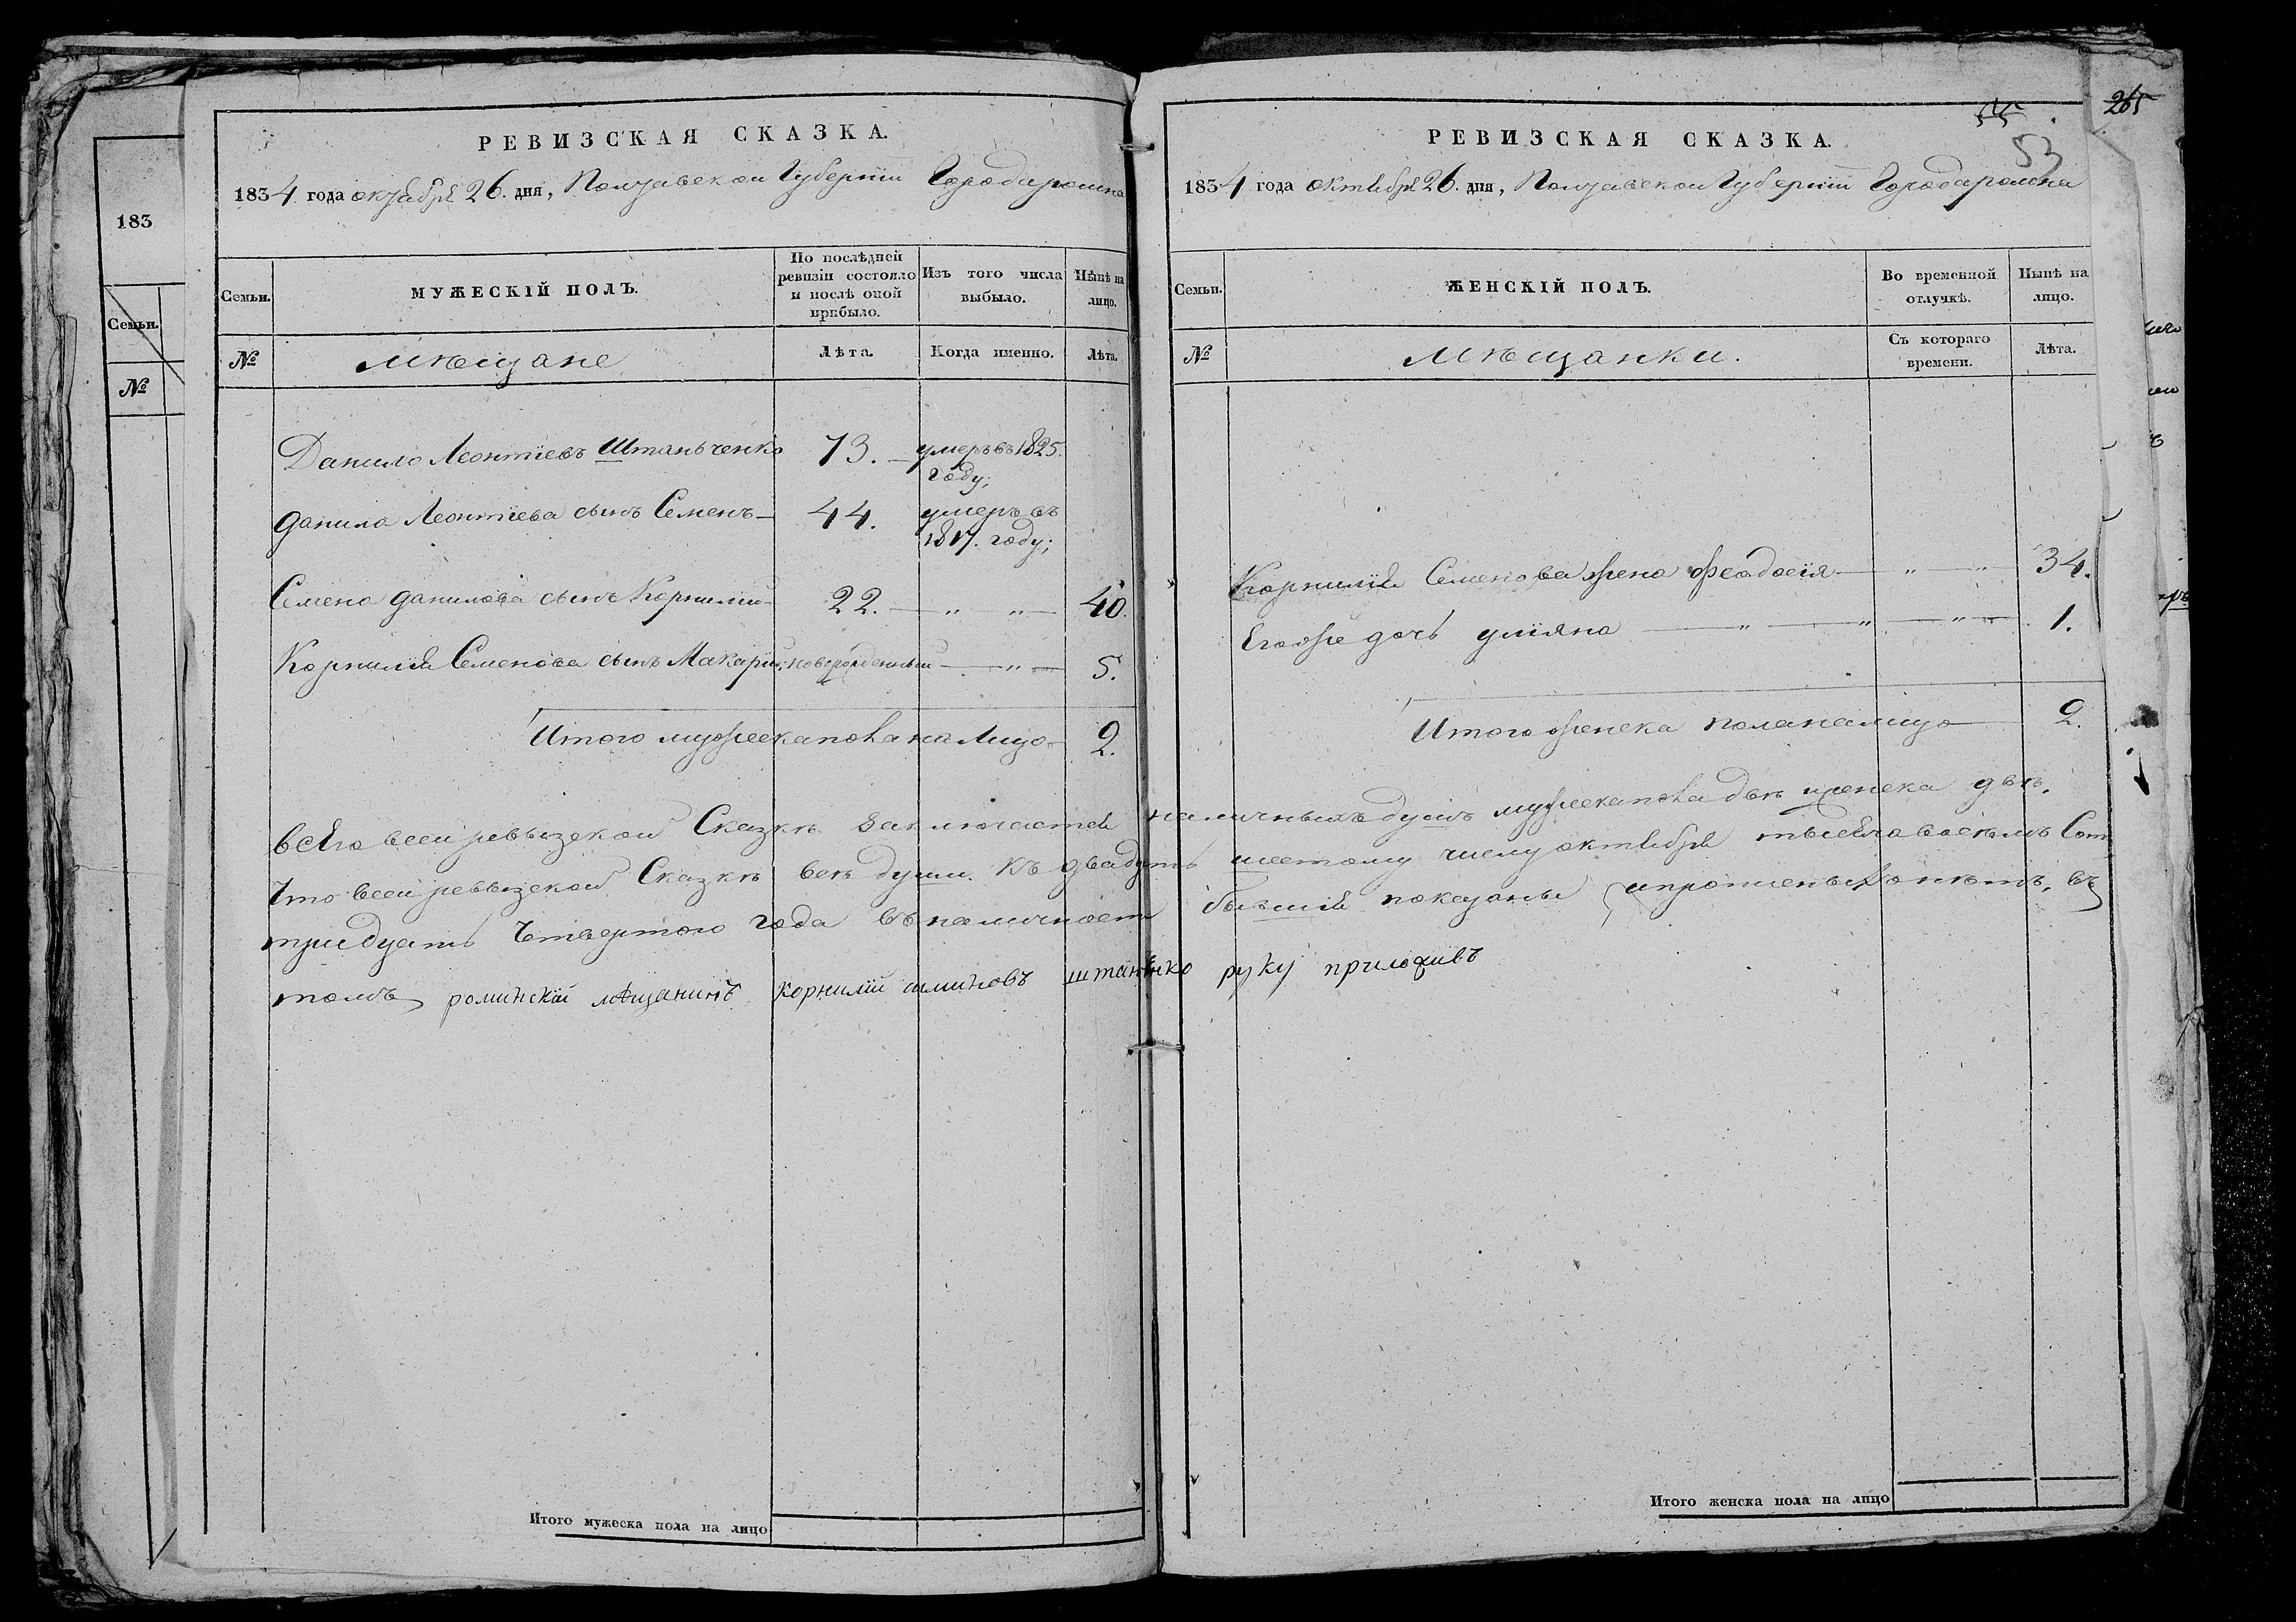 183
Семьи.
№
РЕВИЗСКАЯ СКАЗКА.
1834 года октября 26. дня, Полтавской Губернїи Города ромна
Семьи.
МУЖЕСКІЙ ПОЛЪ.
По послѣдней ревизіи состояло и послѣ оной прибыло.
Изъ того числа выбыло.
Нынѣ на лицо.
№
мѣщане
Лѣта.
Когда именно.
Лѣта.
Данило Леонтїевъ Штаньченко 73. умеръ въ 1825. году;
данила Леонтїева сынъ Семенъ 44. умеръ въ 1817. году;
Семена данилова сынъ Корнилїй 22. — „ „ — 40.
Корнилїя Семенова сынъ Макарїй новорожденный — „ — 5.
Итого мужеска пола на Лицо 2.
РЕВИЗСКАЯ СКАЗКА.
55.
53
265
1834 года октября 26. дня, Полтавской Губернїи Города ромна
Семьи.
ЖЕНСКІЙ ПОЛЪ.
Во временной отлучкѣ.
Нынѣ на лицо.
№
мѣщанки.
Съ котораго времени.
Лѣта.
Корнилїя Семенова жена Феодосїя — „ — „ 34.
Егоже дочь улїяна — „ — „ — „ — 1.
Итого женска пола налицо 2.
всего всей ревызской Сказкѣ Заключается наличныхъ душъ мужеска пола двѣ женска двѣ,
Что всей ревызской Сказкѣ всѣ души къ двадцать шестому числу октября тысяча восемъ Сотъ
тридцать Четвертого года въ наличност бывшїя показаны и прописных нѣтъ, въ
томъ роминскїй мѣщанинъ корнилїй симиновъ штанѣнко руку приложивъ
Итого мужеска пола на лицо
Итого женска пола на лицо